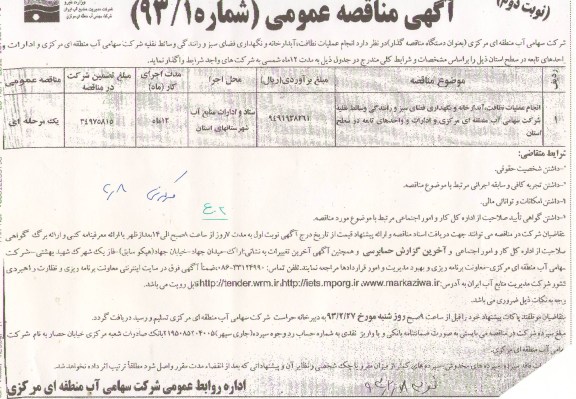 (نوبت دوم)
آگهی مناقصه عمومی (شماره ۹۳/۱)
شرکت سهامی آب منطقه ای مرکزی
شرکت سهامی آب منطقه ای مرکزی (بعنوان دستگاه مناقصه گذار) در نظر دارد انجام عملیات نظافت، آبدارخانه و نگهداری فضای سبز و رانندگی وسائط نقلیه شرکت سهامی آب منطقه ای مرکزی و ادارات و
احدهای تابعه در سطح استان ذیل را براساس مشخصات و شرایط کلی مندرج در جدول ذیل به مدت ۱۲ماه شمسی به شرکت های واجد شرایط واگذار نماید.
ردیف
موضوع مناقصه
مبلغ برآوردی(ریال)
محل اجرا
مدت اجرای کار (ماه)
مبلغ تضمین شرکت در مناقصه
مناقصه عمومی
۱
انجام عملیات نظافت، آبدارخانه و نگهداری فضای سبز و رانندگی وسائط نقلیه شرکت سهامی آب منطقه ای مرکزی و ادارات و واحدهای تابعه در سطح استان
ستاد و ادارات منابع آب شهرستانهای استان
۱۲ماه
۳۴۹۷۵۸۱۵
یک مرحله ای
شرایط متقاضی:
-داشتن شخصیت حقوقی.
-داشتن تجربه کافی و سابقه اجرائی مرتبط با موضوع مناقصه.
-داشتن امکانات و توانائی مالی.
-داشتن گواهی تأیید صلاحیت از اداره کل کار و امور اجتماعی مرتبط با موضوع مورد مناقصه.
تقاضیان شرکت در مناقصه می توانند جهت دریافت اسناد مناقصه و ارائه پیشنهاد قیمت از تاریخ درج آگهی نوبت اول به مدت ۷روز از ساعت ۸صبح الی ۱۴بعدازظهر با ارائه معرفینامه کتبی و ارائه برگ گواهی
صلاحیت از اداره کل کار و امور اجتماعی و آخرین گزارش حسابرسی و همچنین آگهی آخرین تغییرات به نشانی: اراک-میدان جهاد-خیابان جهاد(هپکو سابق)-فاز یک شهرک شهید بهشتی-شرکت
سهامی آب منطقه ای مرکزی-معاونت برنامه ریزی و بهبود مدیریت و امور قراردادها مراجعه نمایند. تلفن تماس: ۰۸۶-۳۳۱۲۴۹۹۰ ضمناً آگهی فوق در سایت اینترنتی معاونت برنامه ریزی و نظارت و راهبردی
کشور شرکت مدیریت منابع آب ایران به آدرس: http://tender.wrm.ir،http://iets.mporg.ir،www.markaziwa.ir قابل رویت می باشد.
رجه به نکات ذیل ضروری می باشد.
متقاضیان موظفند پاکات پیشنهاد خود را قبل از ساعت ۸صبح روز شنبه مورخ ۹۳/۲/۲۷ به دبیرخانه حراست شرکت سهامی آب منطقه ای مرکزی تسلیم و رسید دریافت گردد.
مبلغ سپرده شرکت در مناقصه می بایستی به صورت ضمانتنامه بانکی و یا واریز نقدی به شماره حساب رد وجوه سپرده(جاری سپهر) ۲۱۹۵۰۸۵۲۰۴۰۰۵ بانک صادرات شعبه مرکزی خیابان حصار به نام شرکت
سهامی آب منطقه ای مرکزی.
فاقد سپرده، سپرده های مخدوش، سپرده های کمتر از میزان مقرر یا چک شخصی و نظایر آن و پیشنهاداتی که بعد از انقضاء مدت مقرر واصل شود مطلقاً ترتیب اثر داده نخواهد شد.
اداره روابط عمومی شرکت سهامی آب منطقه ای مرکزی